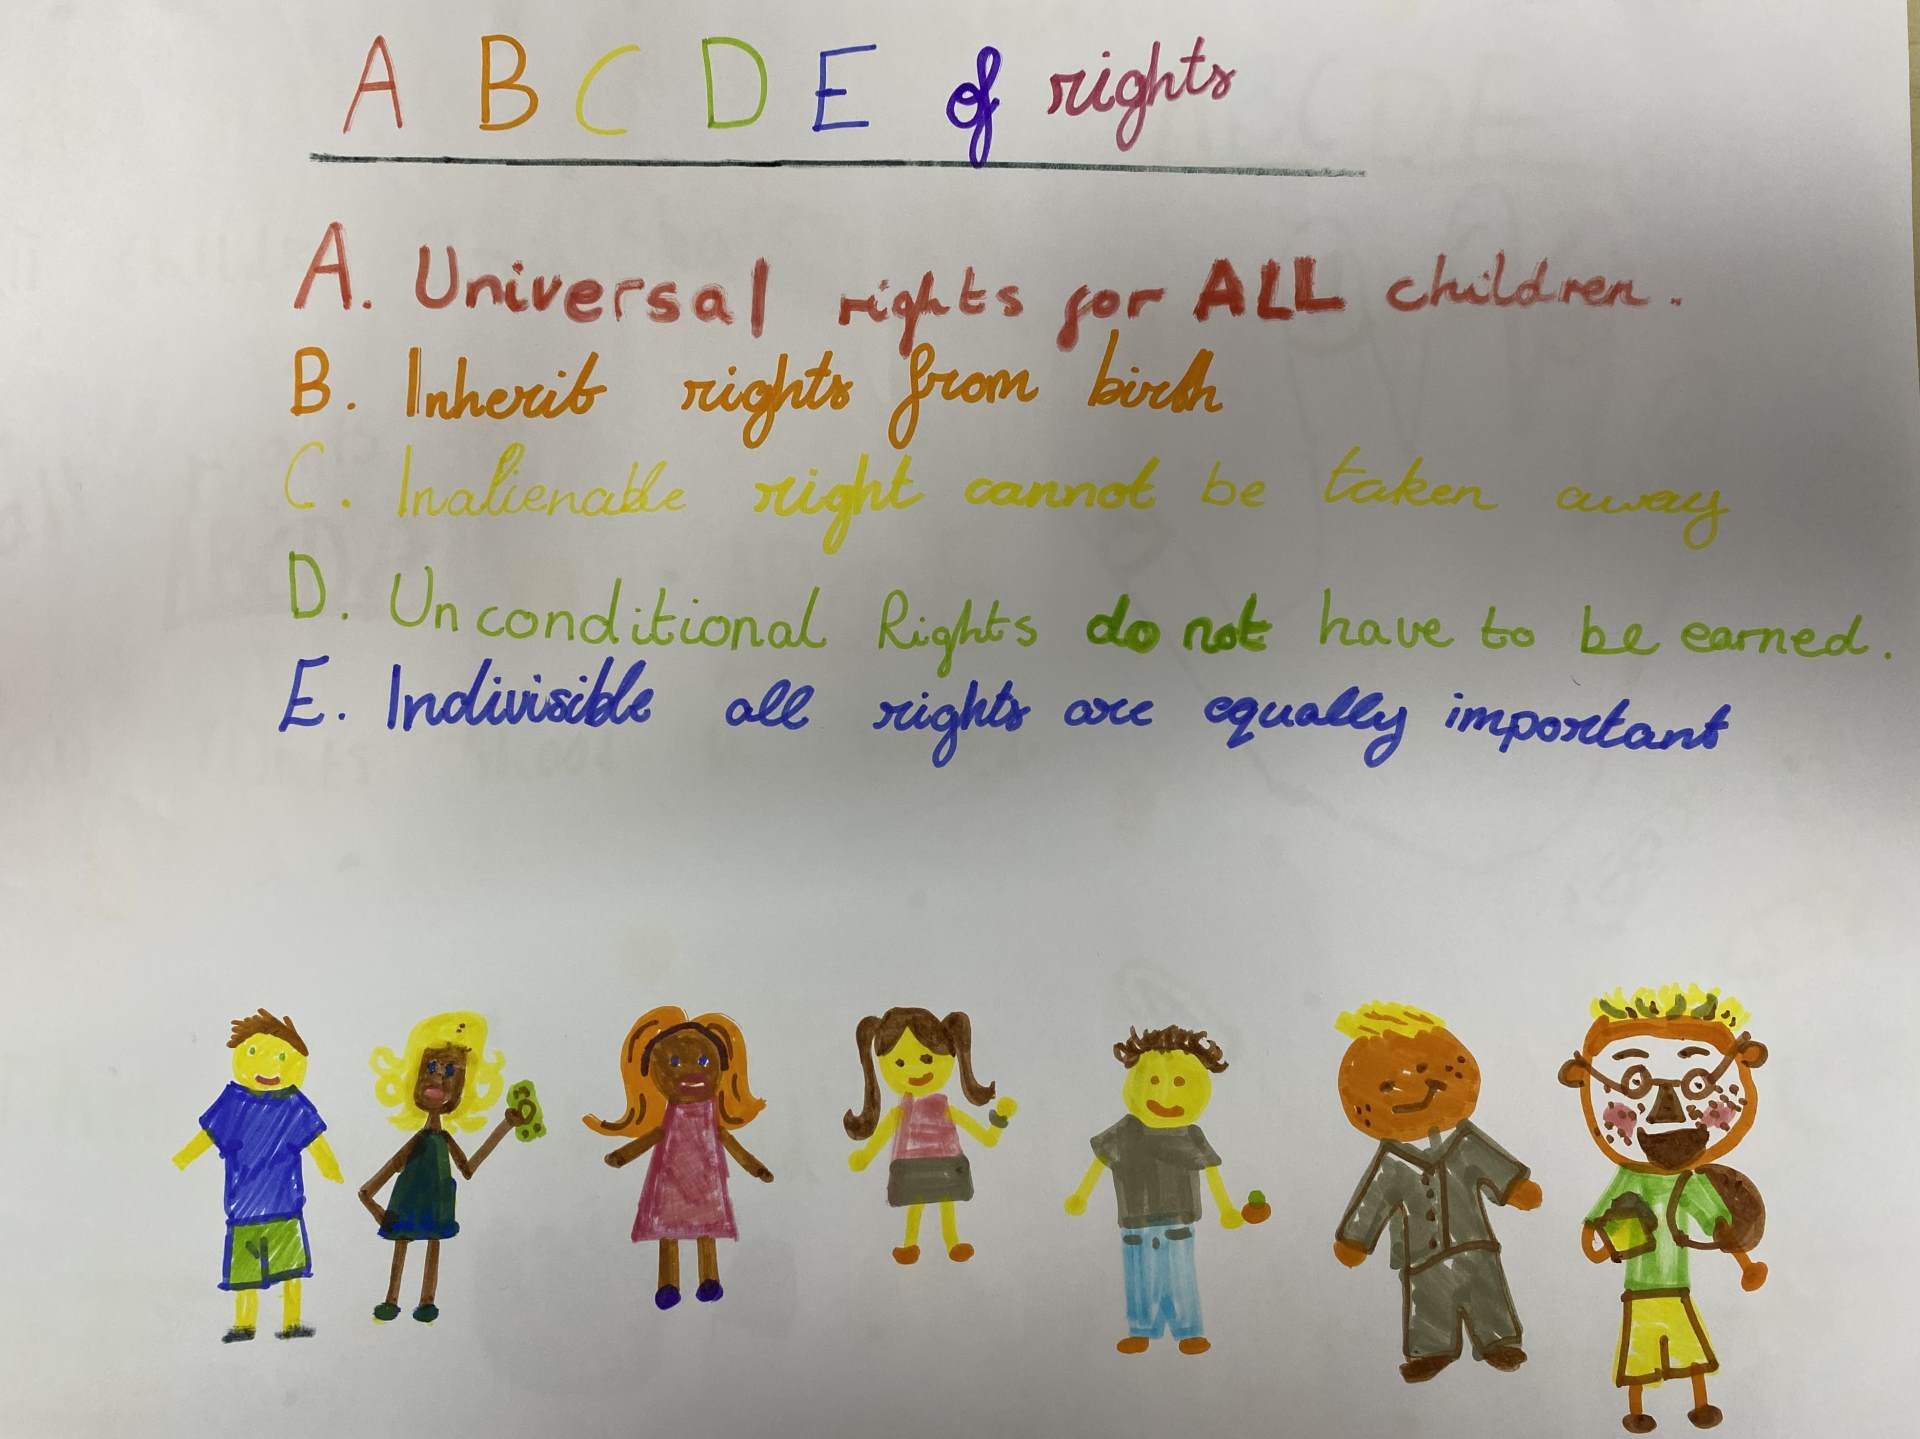 A B C D E of rights
A. Universal rights for ALL children.
B. Inherit rights from birth
C. Inalienable right cannot be taken away
D. Unconditional Rights do not have to be earned.
E. Indivisible all rights are equally important